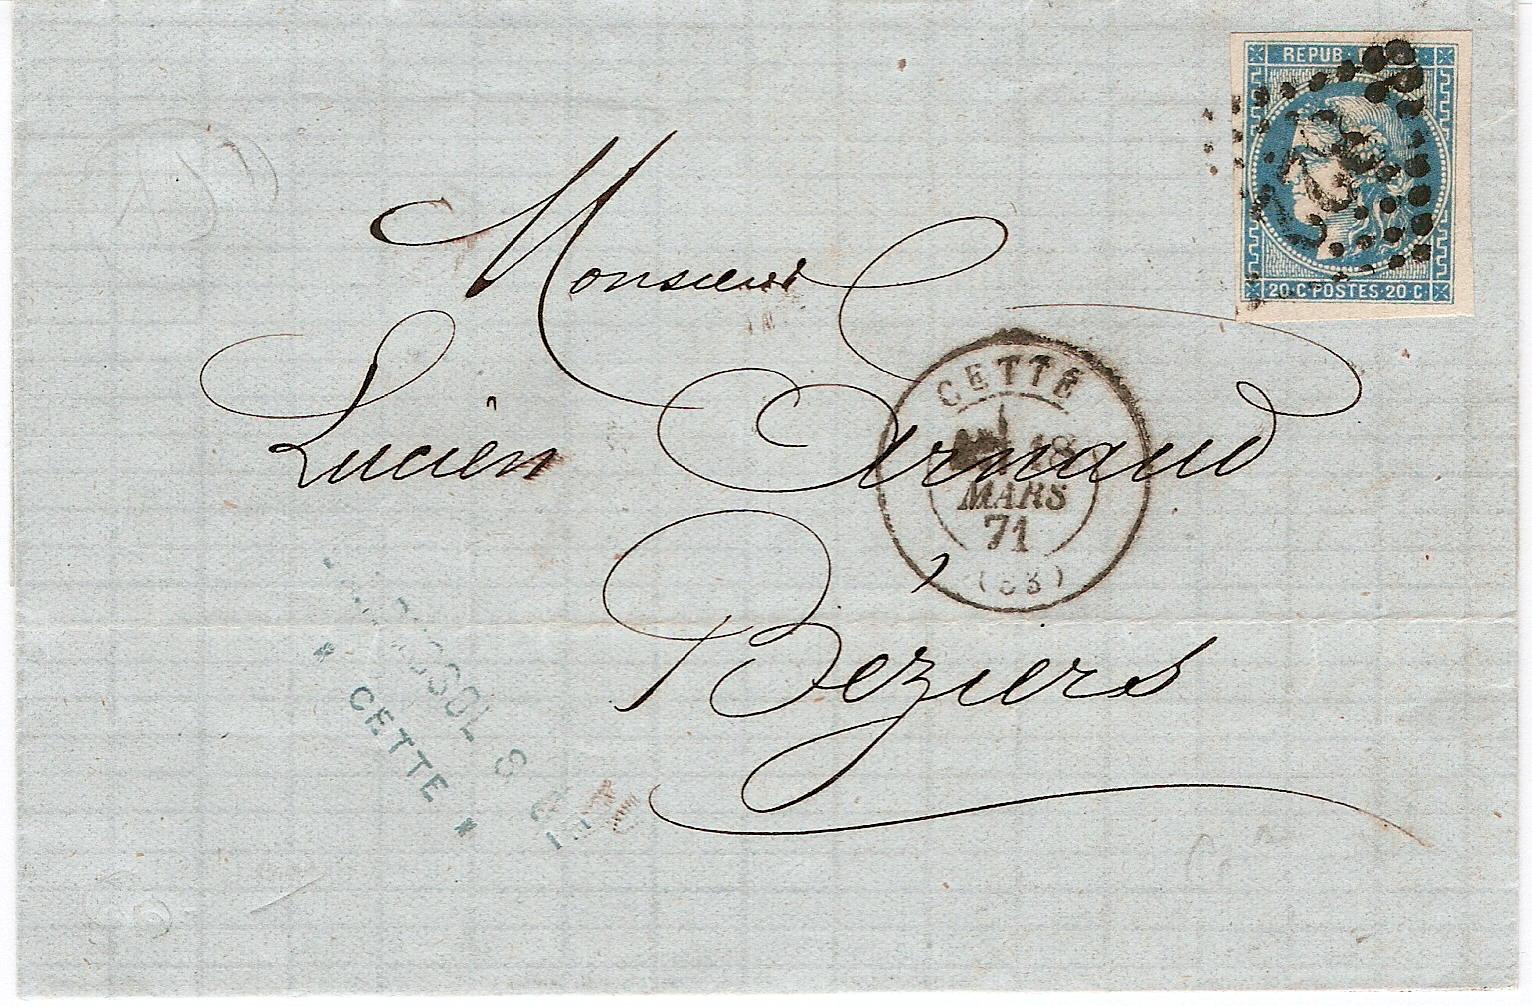 REPUB
20 C POSTES 20 C
Monsieur
Lucien Arnaud
Béziers
CETTE
18
MARS
71
(33)
CETTE